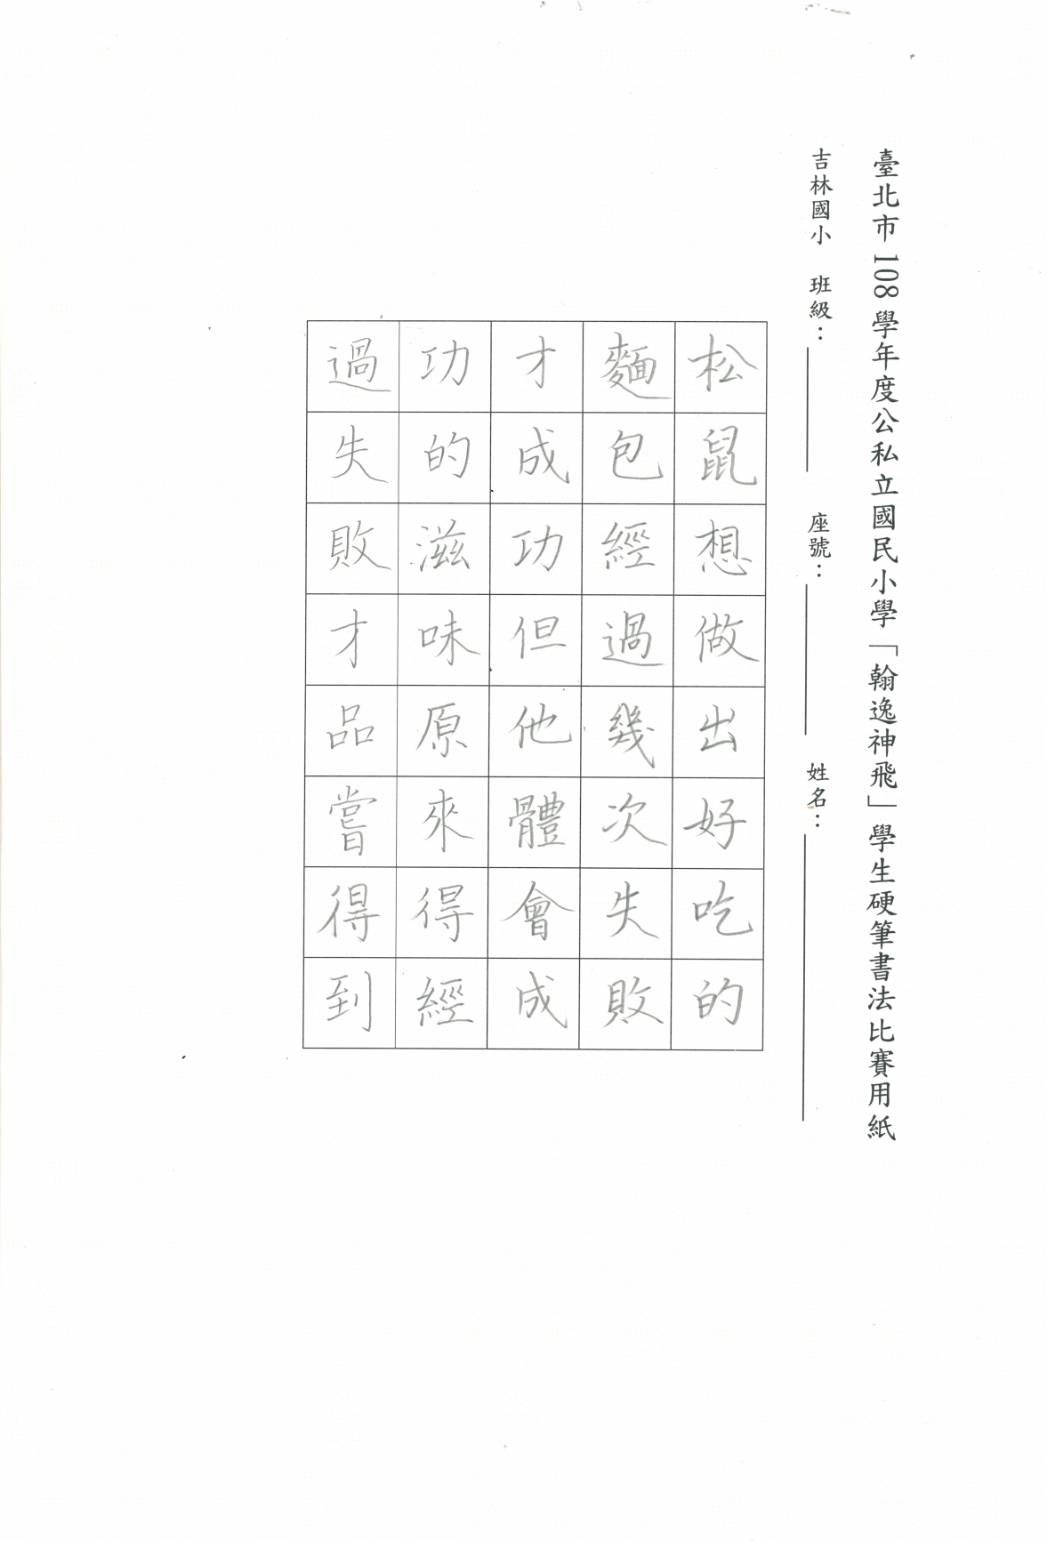 臺北市108學年度公私立國民小學「翰逸神飛」學生硬筆書法比賽用紙
吉林國小 班級： 座號： 姓名：
松鼠想做出好吃的
麵包經過幾次失敗
才成功但他體會成
功的滋味原來得經
過失敗才品嘗得到